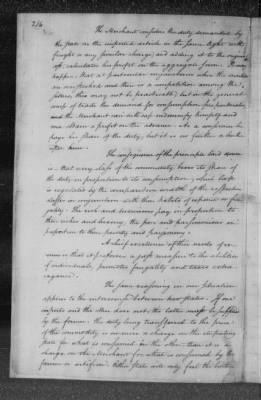 216
The Merchant considers the duty demanded by
the State on the imported article in the same light with
freight or any similar charge; and adding it to the original
cost, calculates his profit on the aggregate sum. It may
happen that at particular conjunctures when the markets
are overstocked and there is a competition among the
sellers, this may not be practicable; but in the general
course of trade the demand for consumption preponderates,
and the Merchant can with ease indemnify himself and
make a profit on the advance. As a consumer he
pays his share of the duty, but it is no further a burthen
upon him.
The consequence of the principle laid down
is that every class of the community bears its share of
the duty in proportion to its consumption; which last
is regulated by the comparative wealth of the respective
classes in conjunction with their habits of expence or frugality.
The rich and luxurious pay in proportion to
their riches and luxury, the poor and parsimonious in
proportion to their poverty and parsimony.
A chief excellence of this mode of revenue
is that it preserves a just measure to the abilities
of individuals, promotes frugality and taxes extravagance.
The same reasoning in our situation
applies to the intercourse between two States. If one
imports and the other does not, the latter must be supplied
by the former. The duty being transferred to the price
of the commodity is no more a charge on the importing
State for what is consumed in the other than it is a
charge on the Merchant for what is consumed by the
farmer or artificer. Either State will only feel the burthen